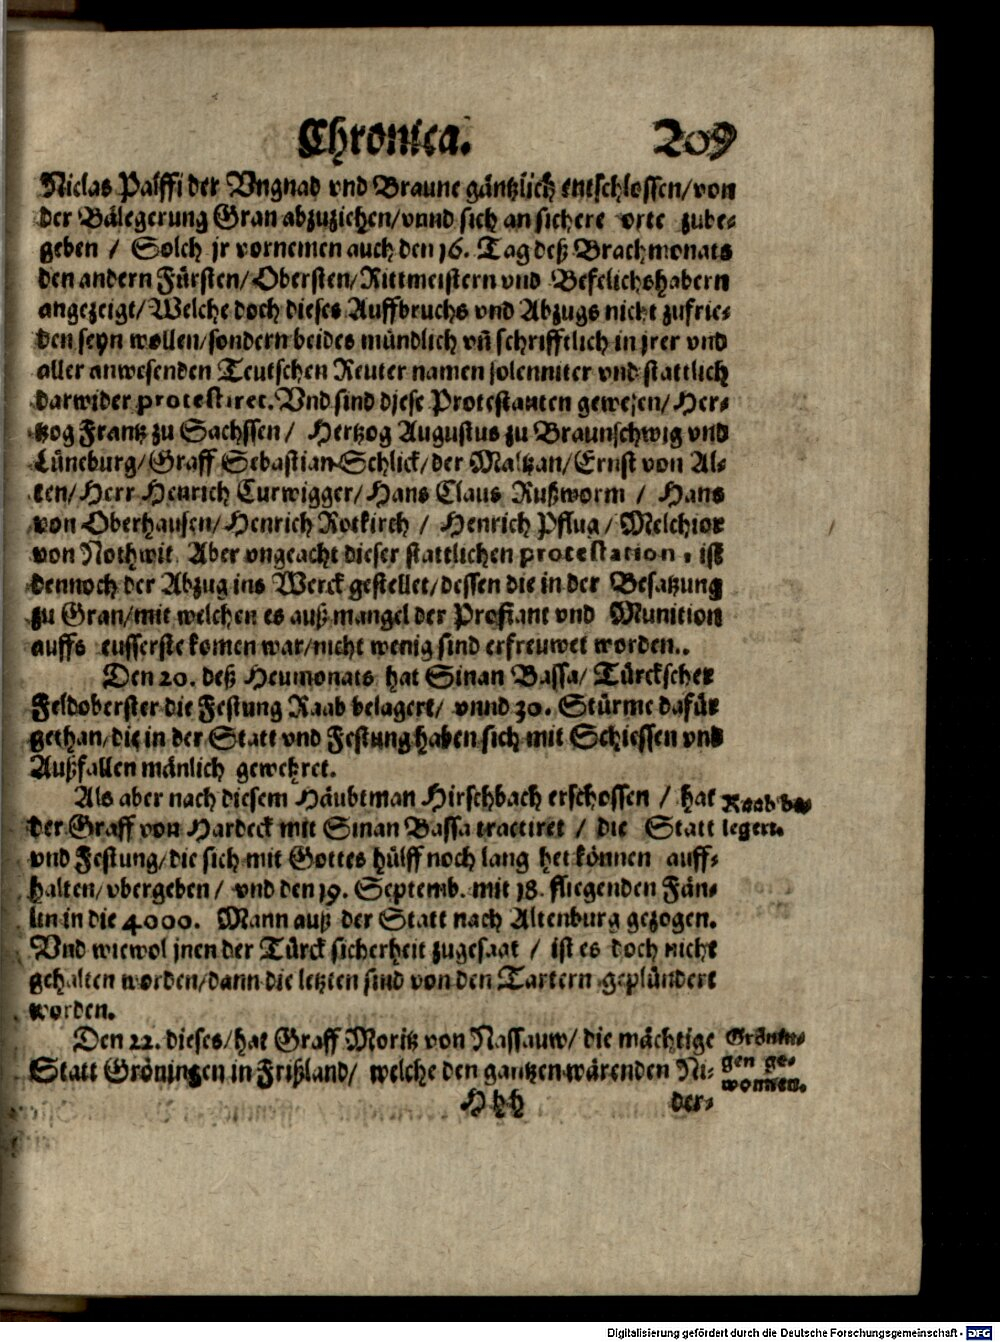 Chronica. 209
Niclas Palffi der Vngnad vnd Braune gäntzlich entschlossen/von
der Bälegerung Gran abzuziehen/vnnd sich an sichere orte zube-
geben / Solch jr vornemen auch den 16. Tag deß Brachmonats
den andern Fürsten/Obersten/Rittmeistern vnd Befelichshabern
angezeigt/Welche doch dieses Auffbruchs vnd Abzugs nicht zufrie-
den seyn wollen/sondern beides mündlich vñ schrifftlich in jrer vnd
aller anwesenden Teutschen Reuter namen solenniter vnd stattlich
darwider protestiret. Vnd sind diese Protestanten gewesen/Her-
tzog Frantz zu Sachssen / Hertzog Augustus zu Braunschwig vnd
Lüneburg/Graff Sebastian Schlick/der Maltzan/Ernst von Al-
ten/Herr Henrich Curwigger/Hans Claus Rußworm / Hans
von Oberhausen/Henrich Rotkirch / Henrich Pflug/Melchior
von Nothwit Aber vngeacht dieser stattlichen protestation, ist
dennoch der Abzug ins Werck gestellet/dessen die in der Besatzung
zu Gran/mit welchen es auß mangel der Profiant vnd Munition
auffs eusserste komen war/nicht wenig sind erfreuwet worden..
Den 20. deß Heumonats hat Sinan Bassa/Türckscher
Feldoberster die Festung Raab belagert/ vnnd 30. Stürme dafür
gethan/die in der Statt vnd Festung haben sich mit Schiessen vnd
Außfallen mänlich gewehret.
Als aber nach diesem Häubtman Hirschbach erschossen / hat
Raab be-
der Graff von Hardeck mit Sinan Bassa tractiret / die Statt
legert.
vnd Festung/die sich mit Gottes hülff noch lang het können auff-
halten/vbergeben/ vnd den 19. Septemb. mit 18. fliegenden Fän-
lin in die 4000. Mann auß der Statt nach Altenburg gezogen.
Vnd wiewol jnen der Türck sicherheit zugesagt / ist es doch nicht
gehalten worden/dann die letzten sind von den Tartern geplündert
worden.
Den 22. dieses/hat Graff Moritz von Nassauw/ die mächtige
Grönin-
Statt Gröningen in Frißland/ welche den gantzen wärenden Ni-
gen ge-
wonnen.
Hhh der-
Digitalisierung gefördert durch die Deutsche Forschungsgemeinschaft - DFG